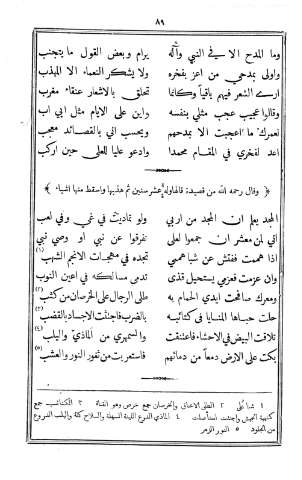 ٨٩
وما المدح الا في النبي وآله يرام وبعض القول ما يتجنب
واولى بمدحي من اعز بفخره ولا يشكر النعماء الا المهذب
ارى الشعر فيهم باقياً وكأنما تحلق بالاشعار عنقاء مغرب
وقالوا عجيب عجب مثلي بنفسه واين على الايام مثل ابي اب
لعمرك ما اعجبت الا بمدحهم ويحسب اني بالقصائد معجب
اعد لفخري في المقام محمدا وادعو عليا للعلى حين اركب
﴿ وقال رحمه الله من قصيدة قالها وله عشر سنين ثم هذبها واسقط منها اشياء ﴾
المجد يعلم ان المجد من اربي ولو تماديت في غي وفي لعب
اني لمن معشر ان جمعوا لعلى تفرقوا عن نبي او وصي نبي
اذا هممت ففتش عن شبا هممي تجده في مهجات الانجم الشهب (١)
وان عزمت فعزمي يستحيل قذى تدمى مسالكه في اعين النوب
ومعرك صافحت ايدي الحمام به طلى الرجال على الخرصان من كثب (٢)
حلت حباها المنايا في كتائبه بالضرب فاجتثت الاجساد بالقضب (٣)
تلاقت البيض في الاحشاء فاعتنقت والسمهري من الماذي واليلب (٤)
بكت على الارض دمعاً من دمائهم فاستعربت من ثغور النور والعشب (٥)
١ شبا على ٢ الطلى الاعناق والخرصان جمع خرص وهو القناة ٣ الكتائب جمع
كتيبة الجيش واجتثت استأصلت ٤ الماذي الدروع اللينة السهلة والسلاح كلة واليلب الدروع
من الجلود ٥ النور الزهر